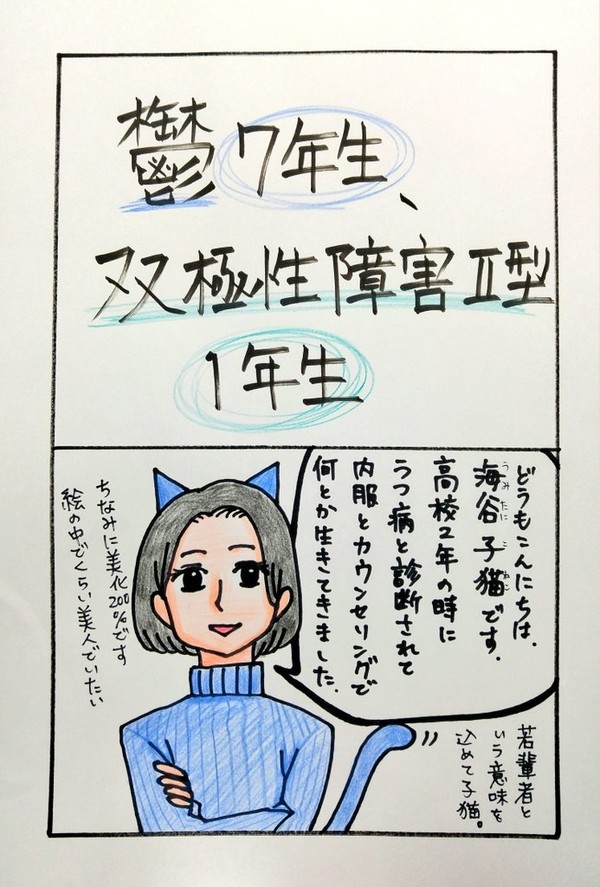 鬱7年生、
双極性障害Ⅱ型
1年生
どうもこんにちは.
海谷子猫です.
うみたに こねこ
高校2年の時に
うつ病と診断されて
内服とカウンセリングで
何とか生きてきました.
若輩者と
いう意味を
込めて子猫。
ちなみに美化200%です
絵の中でくらい美人でいたい